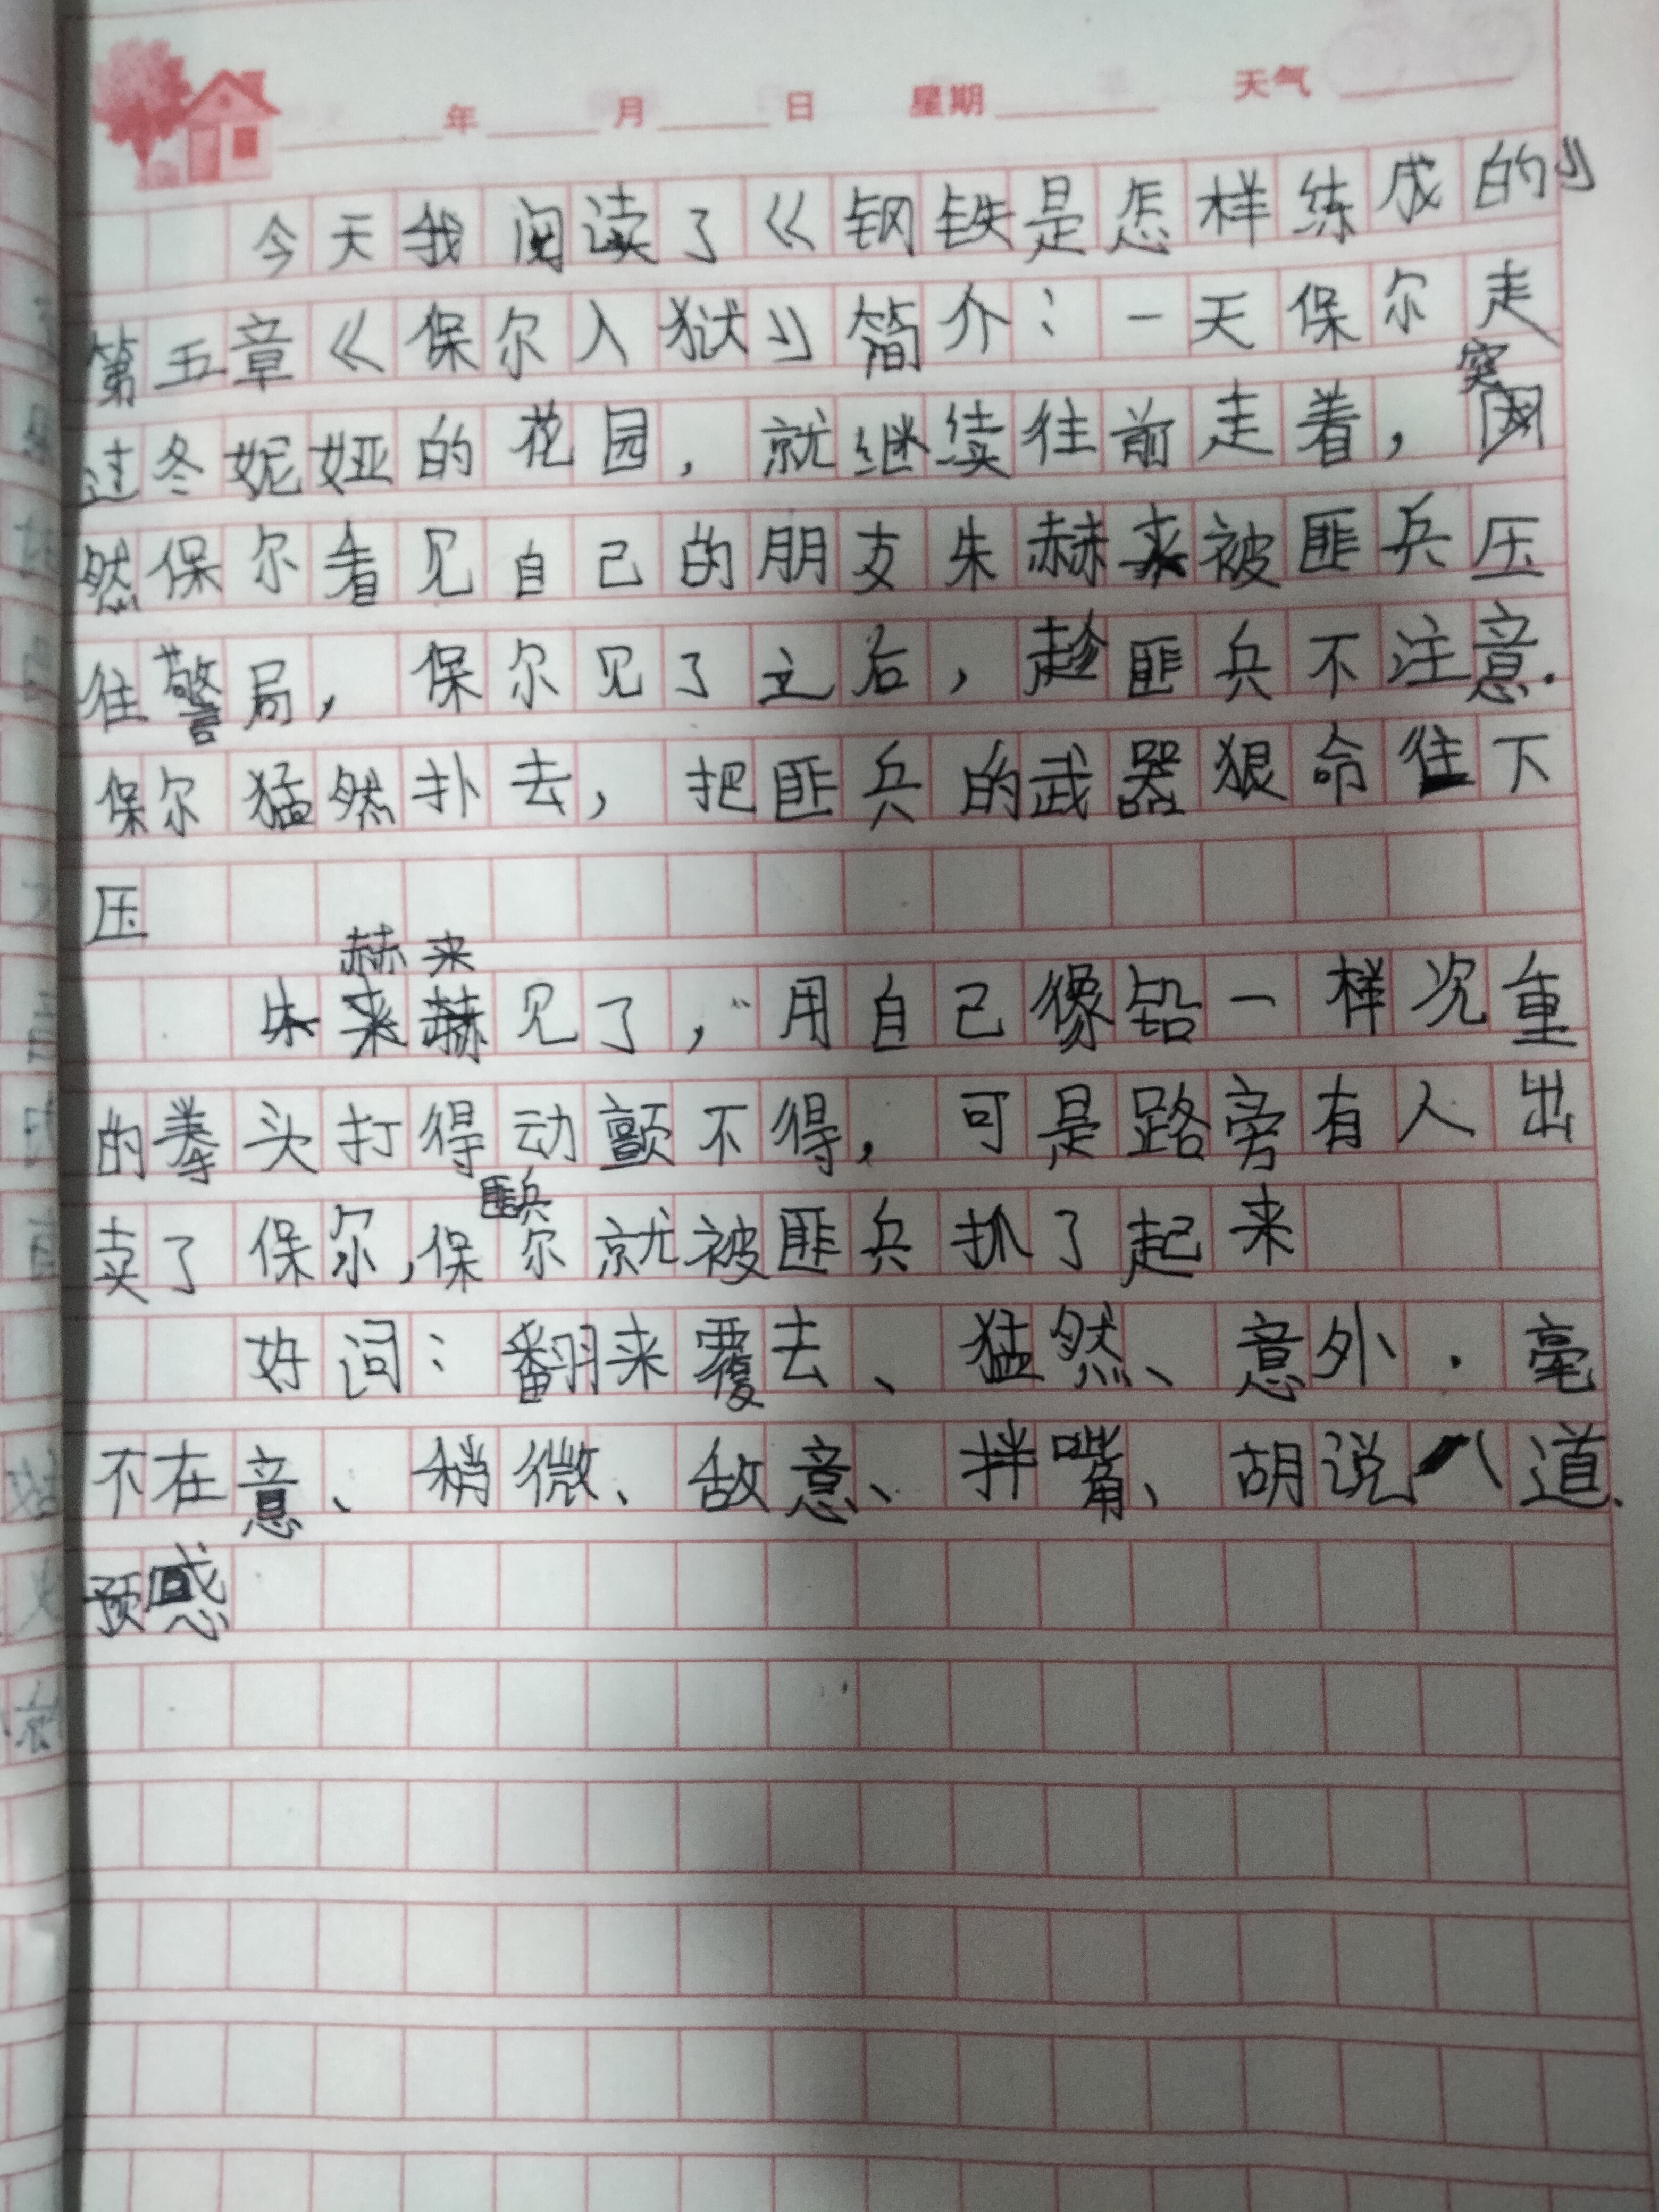 年 月 日 星期 天气
今天我阅读了《钢铁是怎样练成的》
第五章《保尔入狱》简介：一天保尔走
过冬妮娅的花园，就继续往前走着，突
然保尔看见自己的朋友朱赫来被匪兵压
往警局，保尔见了之后，趁匪兵不注意.
保尔猛然扑去，把匪兵的武器狠命往下
压
赫来
朱见了，用自己像铅一样沉重
的拳头打得动颤不得，可是路旁有人出
匪兵
卖了保尔，保尔就被匪兵抓了起来
好词：翻来覆去、猛然、意外.毫
不在意、稍微、敌意、拌嘴、胡说八道、
预感